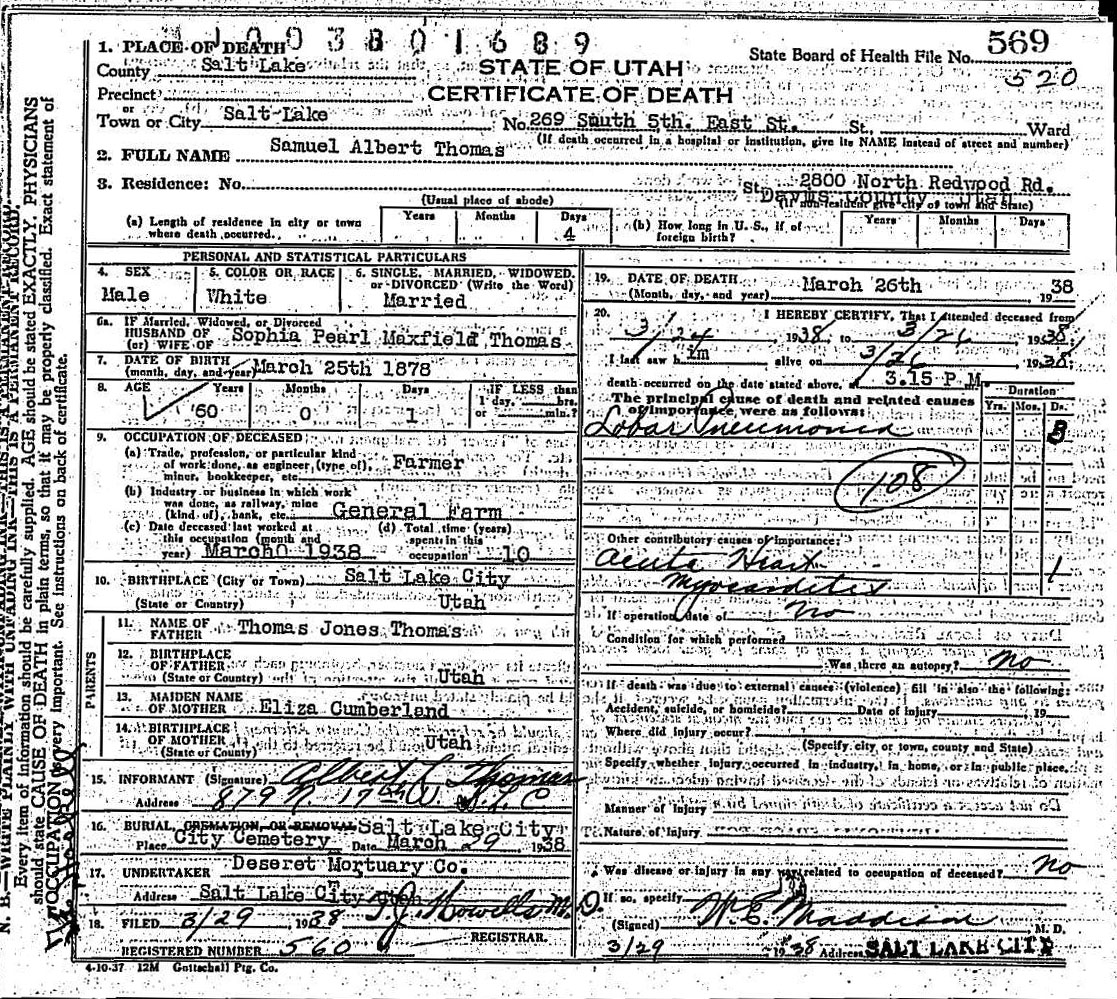 1003801689
1. PLACE OF DEATH
County Salt Lake
STATE OF UTAH
State Board of Health File No. 569
520
Precinct
CERTIFICATE OF DEATH
or
Town or City Salt Lake No. 269 South 5th. East St. St., Ward
(If death occurred in a hospital or institution, give its NAME instead of street and number)
2. FULL NAME Samuel Albert Thomas
3. Residence: No. St. 2800 North Redwood Rd.
Davis County Utah
(Usual place of abode) (If non-resident give city of town and State)
(a) Length of residence in city or town where death occurred. Years Months Days 4
(b) How long in U. S., if of foreign birth? Years Months Days
PERSONAL AND STATISTICAL PARTICULARS
4. SEX Male
5. COLOR OR RACE White
6. SINGLE, MARRIED, WIDOWED, or DIVORCED (Write the Word) Married
6a. IF Married, Widowed, or Divorced
HUSBAND OF Sophia Pearl Maxfield Thomas
(or) WIFE OF
7. DATE OF BIRTH
(month, day, and year) March 25th 1878
8. AGE Years 60 Months 0 Days 1 IF LESS than
1 day, hrs.
or min.?
9. OCCUPATION OF DECEASED
(a) Trade, profession, or particular kind
of work done, as engineer, (type of), Farmer
miner, bookkeeper, etc.
(b) Industry or business in which work
was done, as railway, mine
(kind of), bank, etc. General Farm
(c) Date deceased last worked at
this occupation (month and
year) March 1938
(d) Total time (years)
spent in this
occupation 10
10. BIRTHPLACE (City or Town) Salt Lake City
(State or Country) Utah
PARENTS
11. NAME OF FATHER Thomas Jones Thomas
12. BIRTHPLACE OF FATHER
(State or Country) Utah
13. MAIDEN NAME OF MOTHER Eliza Cumberland
14. BIRTHPLACE OF MOTHER
(State or County) Utah
15. INFORMANT (Signature) Albert C Thomas
Address 879 N. 17th W S.L.C
16. BURIAL, CREMATION, OR REMOVAL Salt Lake City
Place City Cemetery Date March 29 1938
17. UNDERTAKER Deseret Mortuary Co.
Address Salt Lake City Utah
18. FILED 3/29 1938 T.J. Howells M.D.
REGISTRAR.
REGISTERED NUMBER 560
4-10-37 12M Gottschall Ptg. Co.
19. DATE OF DEATH March 26th 1938
(Month, day, and year)
20. I HEREBY CERTIFY, That I attended deceased from
3/24 1938 to 3/26 1938
I last saw h im alive on 3/26 1938
death occurred on the date stated above, at 3.15 P M.
The principal cause of death and related causes
of importance were as follows:
Duration
Yrs. Mos. Ds.
Lobar Pneumonia 3
108
Other contributory causes of importance:
Acute Heart 1
Myocarditis
If operation, date of no
Condition for which performed
Was there an autopsy? no
If death was due to external causes (violence) fill in also the following:
Accident, suicide, or homicide? Date of injury 19
Where did injury occur?
(Specify city or town, county and State)
Specify whether injury occurred in industry, in home, or in public place.
Manner of Injury
Nature of Injury
Was disease or injury in any way related to occupation of deceased? no
If so, specify
(Signed) W.E. Maddison M. D.
3/29 1938 Address SALT LAKE CITY
N. B.—WRITE PLAINLY WITH UNFADING INK—THIS IS A PERMANENT RECORD.
Every item of information should be carefully supplied. AGE should be stated EXACTLY. PHYSICIANS
should state CAUSE OF DEATH in plain terms, so that it may be properly classified. Exact statement of
OCCUPATION is very important. See instructions on back of certificate.